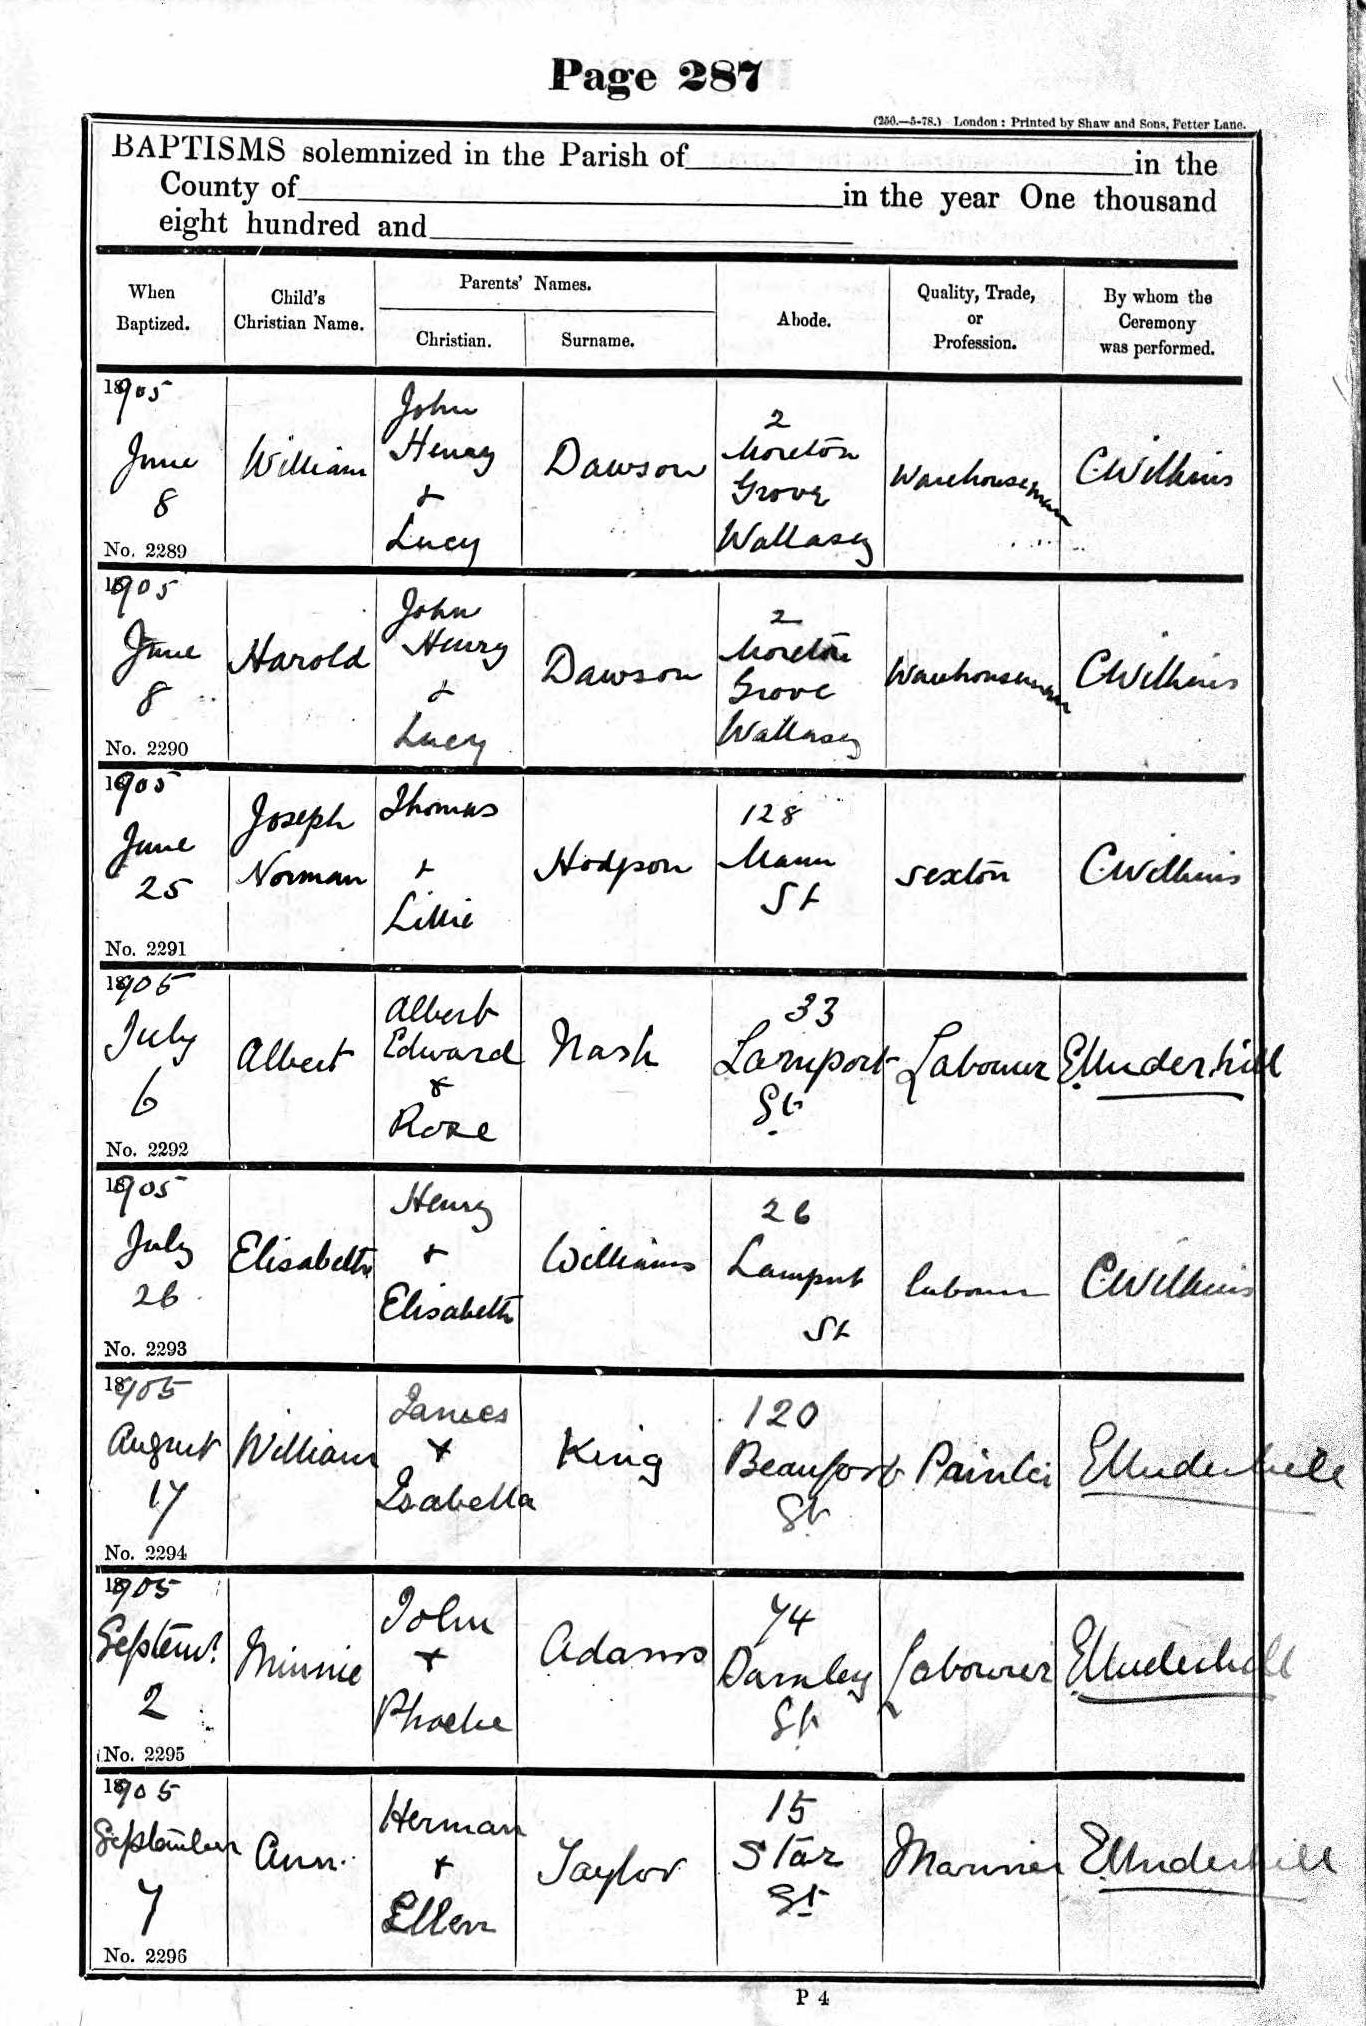 Page 287
(250.—5-78.) London: Printed by Shaw and Sons, Fetter Lane.
BAPTISMS solemnized in the Parish of in the
County of in the year One thousand
eight hundred and
When Baptized.
Child's Christian Name.
Parents' Names.
Christian.
Surname.
Abode.
Quality, Trade, or Profession.
By whom the Ceremony was performed.
1905
June
8
No. 2289
William
John
Henry
&
Lucy
Dawson
2
Moreton
Grove
Wallasey
Warehouseman
C Wilkins
1905
June
8
No. 2290
Harold
John
Henry
&
Lucy
Dawson
2
Moreton
Grove
Wallasey
Warehouseman
C Wilkins
1905
June
25
No. 2291
Joseph
Norman
Thomas
+
Lillie
Hodgson
128
Mann
St
sexton
C Wilkins
1905
July
6
No. 2292
Albert
Albert
Edward
&
Rose
Nash
33
Lamport
St.
Labourer
E Underhill
1905
July
26
No. 2293
Elisabeth
Henry
&
Elisabeth
Williams
26
Lamport
St
labourer
C Wilkins
1905
August
17
No. 2294
William
James
+
Isabella
King
120
Beaufort
St.
Painter
E Underhill
1905
Septemr.
2
No. 2295
Minnie
John
+
Phoebe
Adams
74
Darnley
St.
Labourer
E Underhill
1905
September
7
No. 2296
Ann
Herman
+
Ellen
Taylor
15
Star
St.
Mariner
E Underhill
P 4